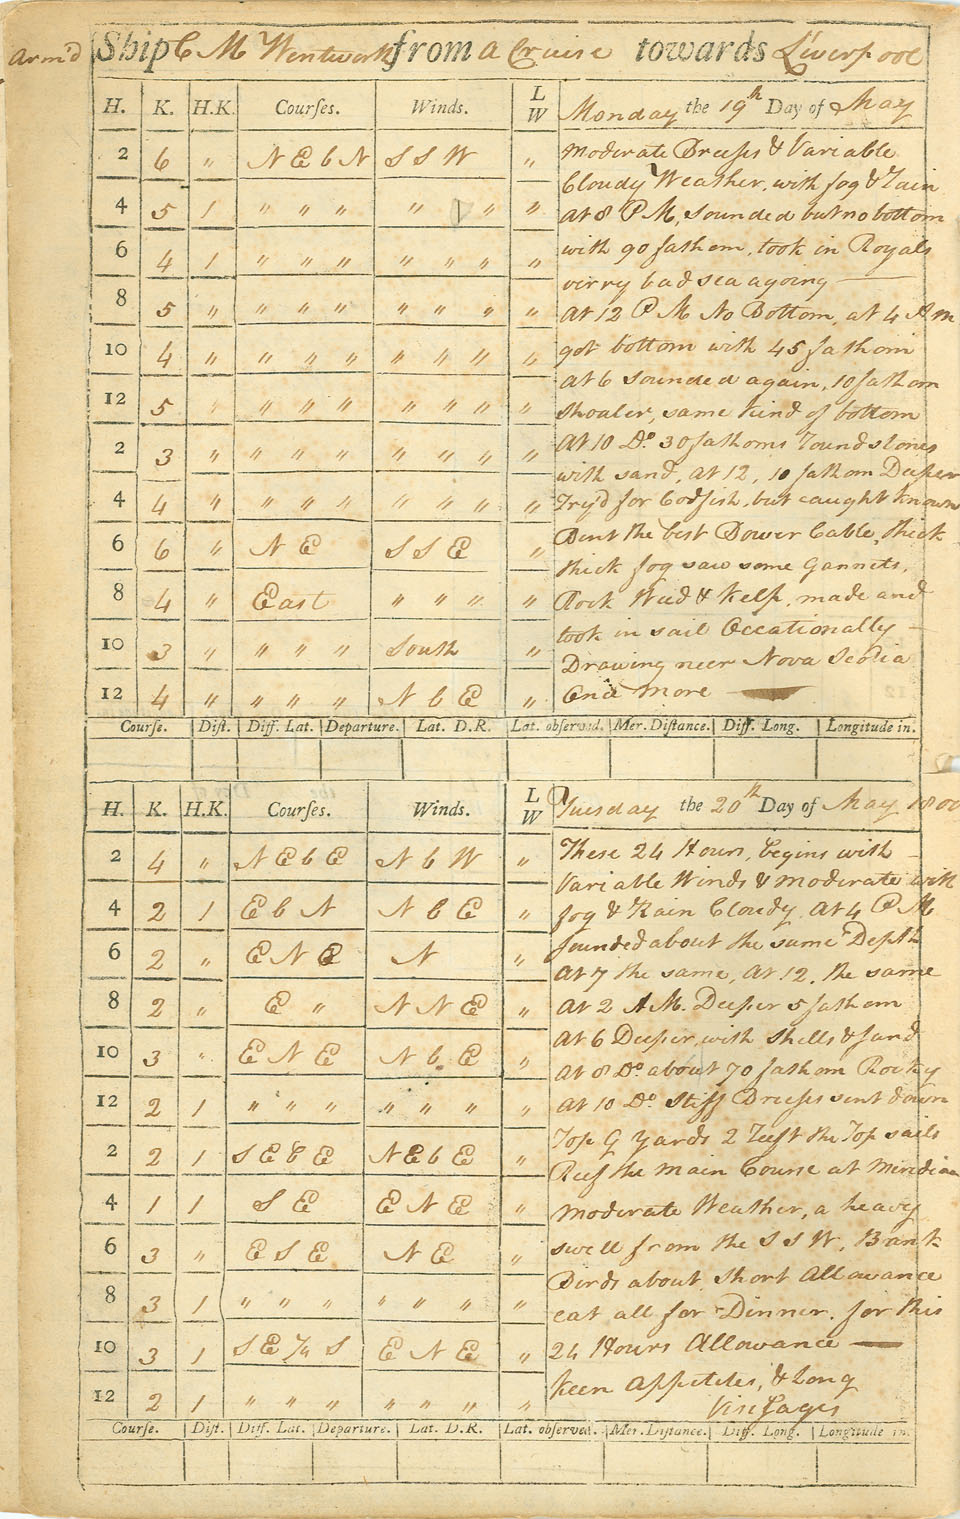 Arm'd Ship C M Wentworth from a Cruise towards Liverpool
H. K. H.K. Courses. Winds. L W Monday the 19th Day of May
2 6 " N E b N S S W " Moderate Breeses & Variable
Cloudy Weather, with fog & Rain
4 5 1 " " " " " " At 8 P M, sounded but no bottom
6 4 1 " " " " " " " with 90 fathem, took in Royals
virry bad sea agoing —
8 5 " " " " " " " " At 12 P M No Bottom, at 4 A m
10 4 " " " " " " " " got bottom with 45 fathom
At 6 sounded again, 10 fathom
12 5 " " " " " " " " Shoaler, same kind of bottom
2 3 " " " " " " " " At 10 Do. 30 fathoms Round stones
with sand, at 12, 10 fathom Deeper
4 4 " " " " " " " " Try'd for Codfish, but caught known
6 6 " N E S S E " Bent the best Bower Cable, thick
thick fog saw some Gannits,
8 4 " East " " " " Rock Weed & Kelp, made and
took in sail Occationally —
10 3 " " " " South " Drawing neer Nova Scotia
12 4 " " " " N b E " Once more —
Course. Dist. Diff. Lat. Departure. Lat. D.R. Lat. observed. Mer. Distance. Diff. Long. Longitude in.
H. K. H.K. Courses. Winds. L W Tuesday the 20th Day of May 1800
2 4 " N E b E N b W " These 24 Hours, begins with
Variable Winds & moderate with
4 2 1 E b N N b E " fog & Rain Cloudy, At 4 P M
6 2 " E N E N " Sounded about the same Depth
At 7 the same, At 12, the same
8 2 " E " N N E " At 2 A M. Deeper 5 fathom
10 3 " E N E N b E " At 6 Deeper, with Shells & sand
At 8 Do about 70 fathom Rocky
12 2 1 " " " " " " " At 10 Do. Stiff Breeses sent down
2 2 1 S E b E N E b E " Top G Yards 2 Reeft the Top sails
Reef the main Course at Miridian
4 1 1 S E E N E " Moderate Weather, a heavy
6 3 " E S E N E " swell from the S S W, Bank
Birds about, Short Allowance
8 3 1 " " " " " " " eat all for Dinner, for this
10 3 1 S E 1/4 S E N E " 24 Hours Allowance —
Keen Appetites, & Long
12 2 1 " " " " " " " " Vissages
Course. Dist. Diff. Lat. Departure. Lat. D.R. Lat. observed. Mer. Distance. Diff. Long. Longitude in.